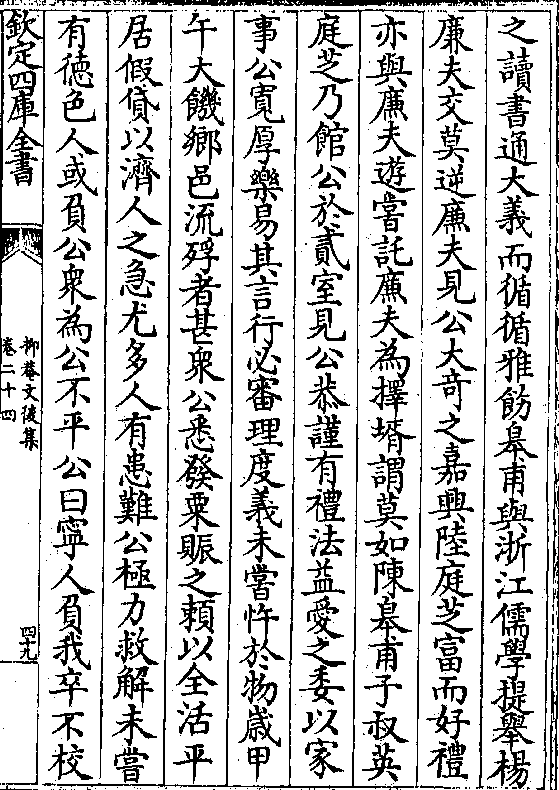 之讀書通大義而循循雅飭皋甫與浙江儒學提舉楊
廉夫交莫逆廉夫見公大奇之嘉興陸庭芝富而好禮
亦與廉夫遊嘗託廉夫為擇壻謂莫如陳皋甫子叔英
庭芝乃館公於貳室見公恭謹有禮法益愛之委以家
事公寛厚樂易其言行必審理度義未嘗忤於物歲甲
午大饑鄉邑流殍者甚衆公悉發粟賑之頼以全活平
居假貸以濟人之急尤多人有患難公極力救解未嘗
有徳色人或負公衆為公不平公曰寧人負我卒不校
欽定四庫全書
抑菴文後集
卷二十四
四十九